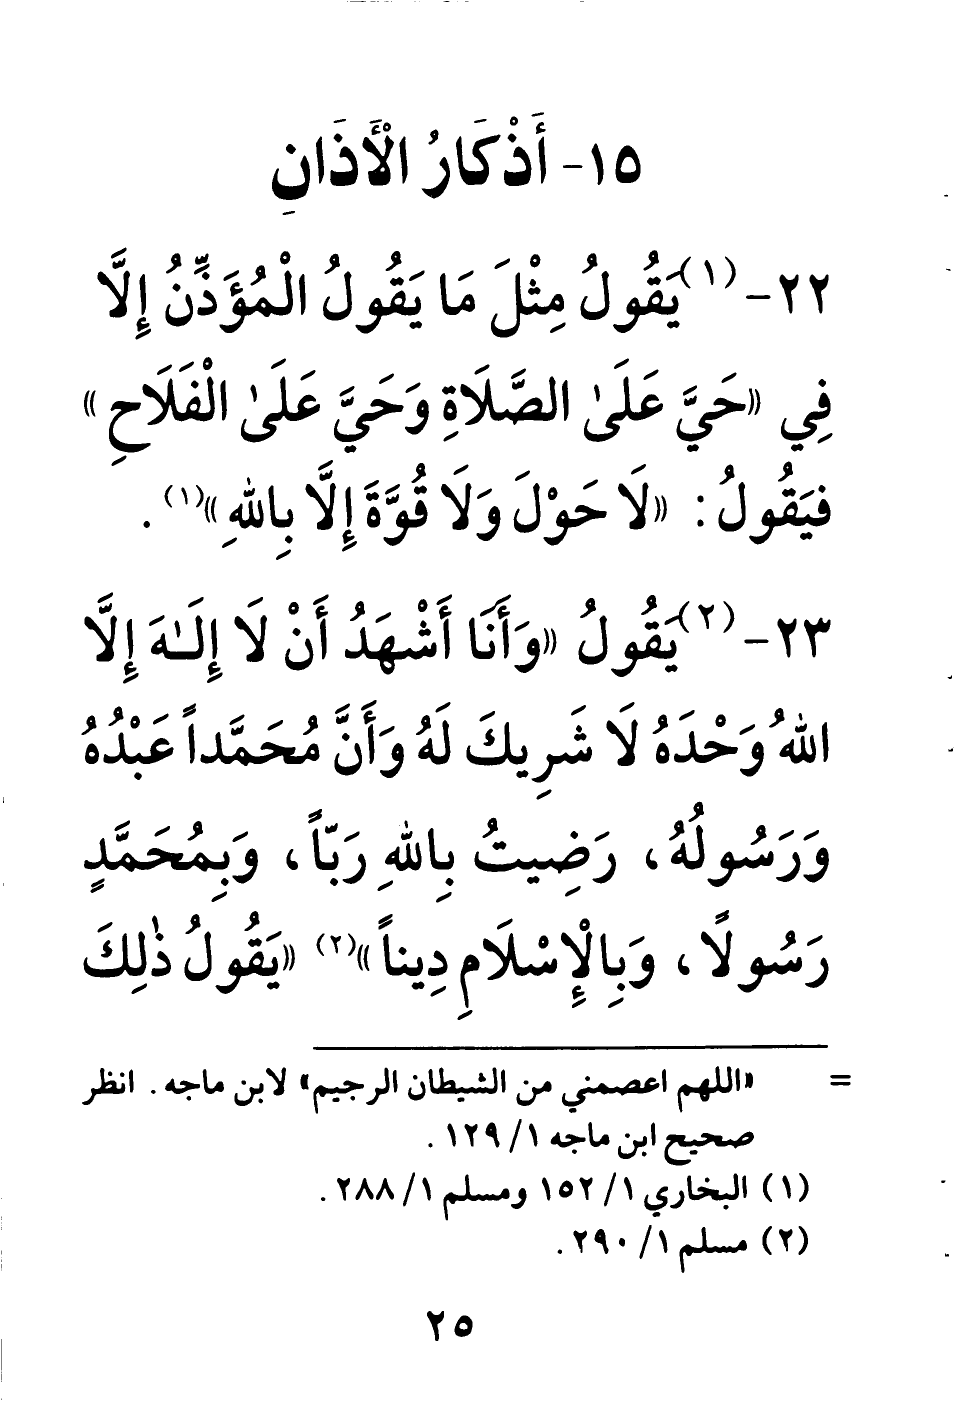 ١٥- أَذْكَارُ الْأَذَانِ
٢٢-(١)يَقُولُ مِثْلَ مَا يَقُولُ الْمُؤَذِّنُ إِلَّا
فِي «حَيَّ عَلَىٰ الصَّلَاةِ وَحَيَّ عَلَىٰ الْفَلَاحِ»
فيَقُولُ: «لَا حَوْلَ وَلَا قُوَّةَ إِلَّا بِاللهِ»(١).
٢٣-(٢)يَقُولُ «وَأَنَا أَشْهَدُ أَنْ لَا إِلَـٰهَ إِلَّا
اللهُ وَحْدَهُ لَا شَرِيكَ لَهُ وَأَنَّ مُحَمَّداً عَبْدُهُ
وَرَسُولُهُ، رَضِيتُ بِاللهِ رَبّاً، وَبِمُحَمَّدٍ
رَسُولًا، وَبِالْإِسْلَامِ دِيناً»(٢) «يَقُولُ ذٰلِكَ
= «اللهم اعصمني من الشيطان الرجيم» لابن ماجه. انظر
صحيح ابن ماجه ١/ ١٢٩.
(١) البخاري ١/ ١٥٢ ومسلم ١/ ٢٨٨.
(٢) مسلم ١/ ٢٩٠.
٢٥